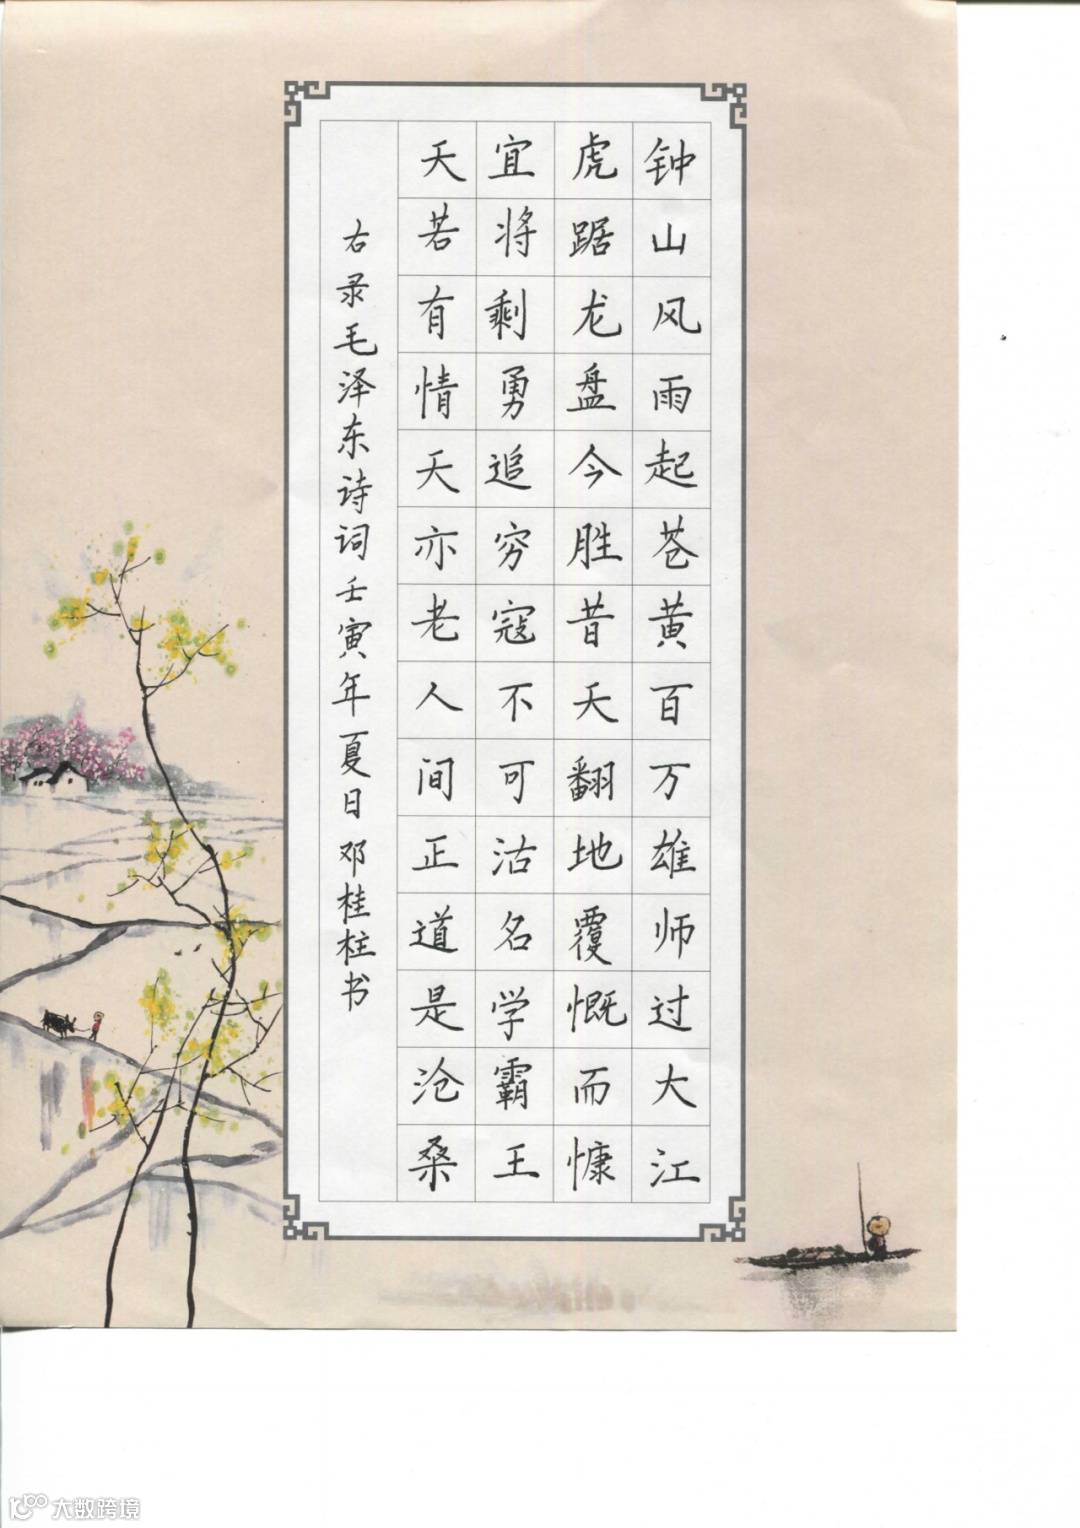 钟山风雨起苍黄百万雄师过大江
虎踞龙盘今胜昔天翻地覆慨而慷
宜将剩勇追穷寇不可沽名学霸王
天若有情天亦老人间正道是沧桑
右录毛泽东诗词壬寅年夏日邓桂柱书
大数跨境